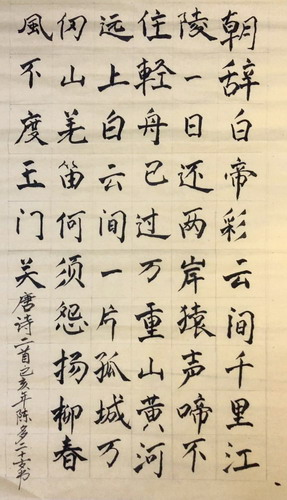 朝辞白帝彩云间千里江
陵一日还两岸猿声啼不
住軽舟已过万重山黄河
远上白云间一片孤城万
仞山羌笛何须怨扬柳春
風不度玉门关
唐诗二首己亥年陈多二十书